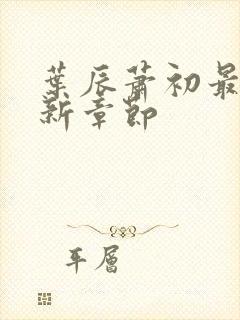 葉辰蕭初最
新章節
平層